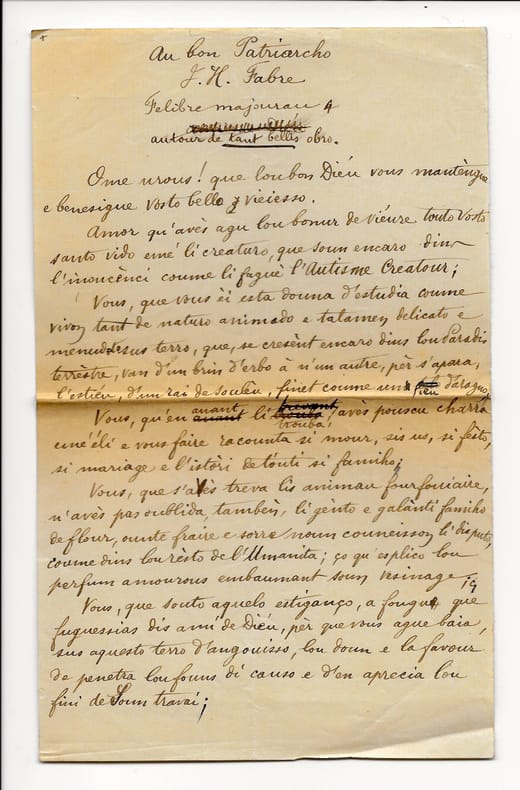 Au bon Patriarcho
J. H. Fabre
Felibre majourau
autour de tant bellis obro.
Ome urous! que lou bon Diéu vous mantèngue
e benesigue vosto bello vieiesso.
Amor qu'avès agu lou bonur de viéure touto vosto
santo vido emé li creaturo, que soun encaro dins
l'inoucènci coume li faguè l'Autisme Creatour;
Vous, que vous èi esta douna d'estudia coume
vivon tant de naturo animado e talamen delicato e
menudo sus terro, que, se cresènt encaro dins lou Paradis
terrèstre, van d'un brin d'erbo à n'un autre, pèr s'apara,
l'estiéu, d'un rai de soulèu, finet coume un fiéu d'aragno,
Vous, qu'en anant li trouba, avès pouscu charra
emé éli e vous faire racounta si mour, sis us, si fèsto,
si mariage e l'istòri de tóuti si famiho;
Vous, que s'avès treva lis animau fourfouiaire,
n'avès pas oublida, tambèn, li gènto e galanti famiho
de flour, ounte fraire e sorre noun couneisson li disputo,
coume dins lou rèsto de l'Umanita; ço qu'esplico lou
perfum amourous embaumant soun vesinage;
Vous, que souto aquelo estiganço, a fougu que
fuguessias dis ami de Diéu, pèr que vous ague baia,
sus aquesto terro d'angouisso, lou doun e la favour
de penetra lou founs di causo e d'en aprecia lou
fini de Soun travai;